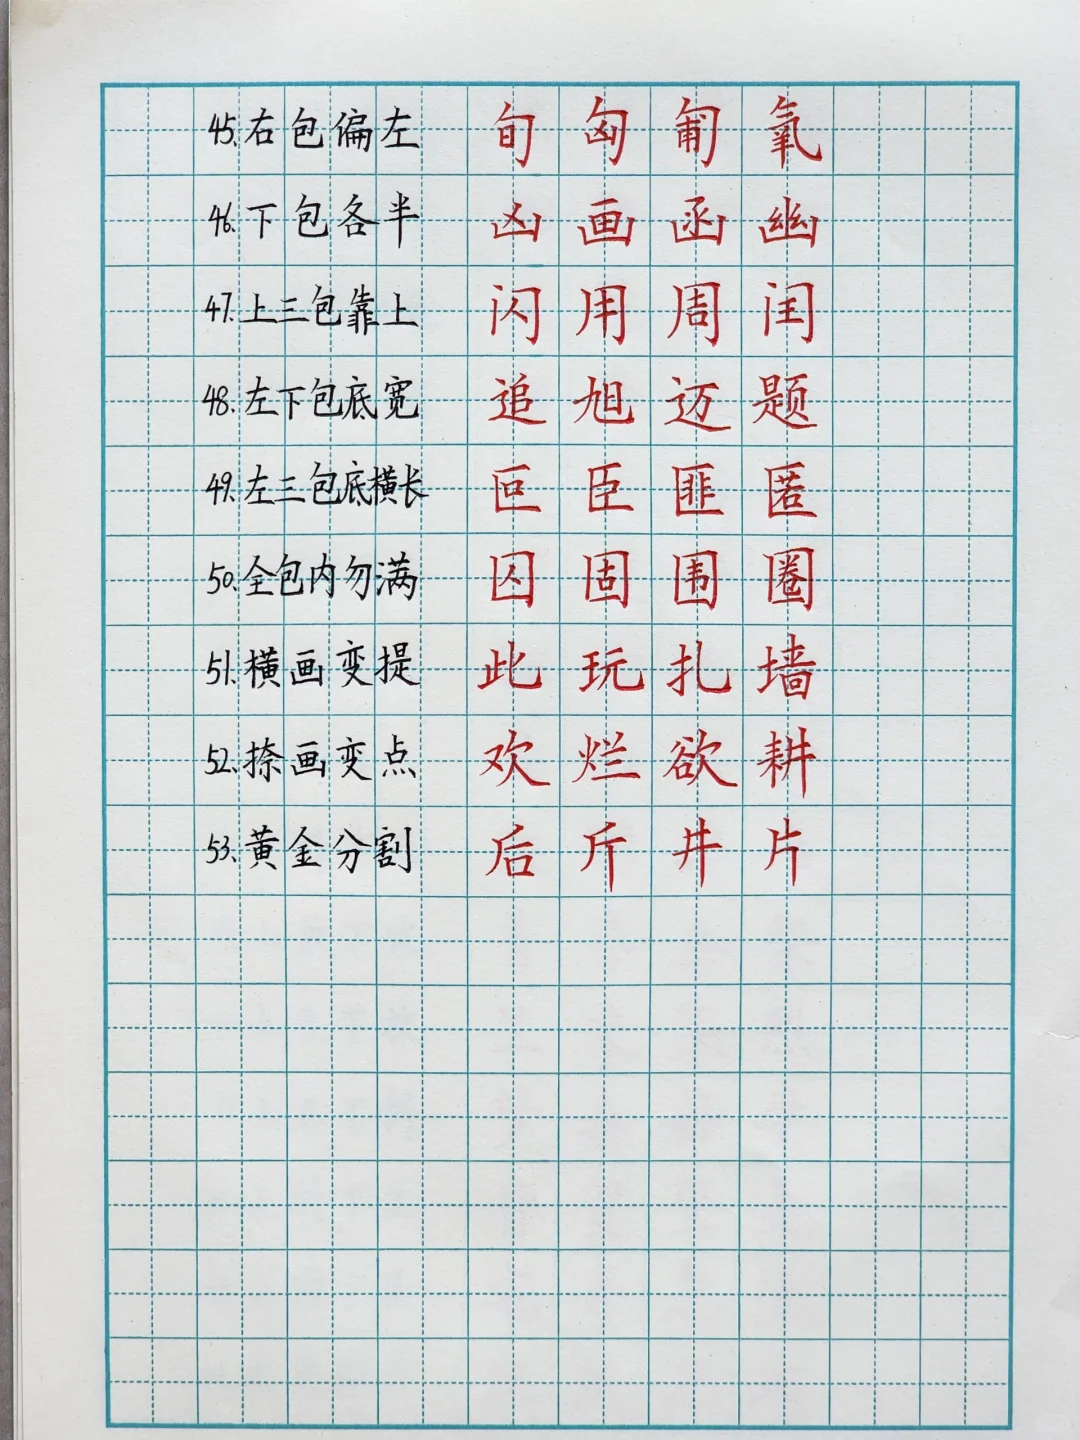 45.右包偏左 旬 匈 匍 氧
46.下包各半 凶 画 函 幽
47.上三包靠上 闪 用 周 闰
48.左下包底宽 追 旭 迈 题
49.左三包底横长 叵 臣 匪 匿
50.全包内勿满 囚 固 围 圈
51.横画变提 此 玩 扎 墙
52.捺画变点 欢 烂 欲 耕
53.黄金分割 后 斤 井 片